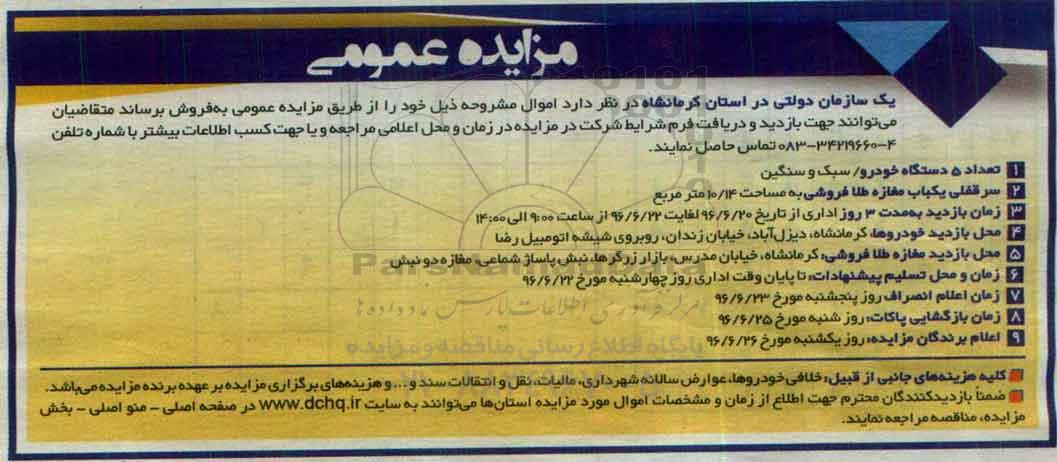 مزایده عمومی
یک سازمان دولتی در استان کرمانشاه در نظر دارد اموال مشروحه ذیل خود را از طریق مزایده عمومی به‌فروش برساند متقاضیان
می‌توانند جهت بازدید و دریافت فرم شرایط شرکت در مزایده در زمان و محل اعلامی مراجعه و یا جهت کسب اطلاعات بیشتر با شماره تلفن
۴-۰۸۳-۳۴۲۱۹۶۶۰ تماس حاصل نمایند.
۱ تعداد ۵ دستگاه خودرو/ سبک و سنگین
۲ سرقفلی یکباب مغازه طلا فروشی به مساحت ۱۰/۱۴ متر مربع
۳ زمان بازدید به‌مدت ۳ روز اداری از تاریخ ۹۶/۶/۲۰ لغایت ۹۶/۶/۲۲ از ساعت ۹:۰۰ الی ۱۴:۰۰
۴ محل بازدید خودروها، کرمانشاه، دیزل‌آباد، خیابان زندان، روبروی شیشه اتومبیل رضا
۵ محل بازدید مغازه طلا فروشی: کرمانشاه، خیابان مدرس، بازار زرگرها، نبش پاساژ شماعی، مغازه دو نبش
۶ زمان و محل تسلیم پیشنهادات: تا پایان وقت اداری روز چهارشنبه مورخ ۹۶/۶/۲۲
۷ زمان اعلام انصراف روز پنجشنبه مورخ ۹۶/۶/۲۳
۸ زمان بازگشایی پاکات: روز شنبه مورخ ۹۶/۶/۲۵
۹ اعلام برندگان مزایده: روز یکشنبه مورخ ۹۶/۶/۲۶
کلیه هزینه‌های جانبی از قبیل: خلافی خودروها، عوارض سالانه شهرداری، مالیات، نقل و انتقالات سند و ... و هزینه‌های برگزاری مزایده بر عهده برنده مزایده می‌باشد.
ضمناً بازدیدکنندگان محترم جهت اطلاع از زمان و مشخصات اموال مورد مزایده استان‌ها می‌توانند به سایت www.dchq.ir در صفحه اصلی – منو اصلی – بخش
مزایده، مناقصه مراجعه نمایند.
ParsNamadData
مرکز فرآوری اطلاعات پارس نماد داده ها
پایگاه اطلاع رسانی مناقصه و مزایده